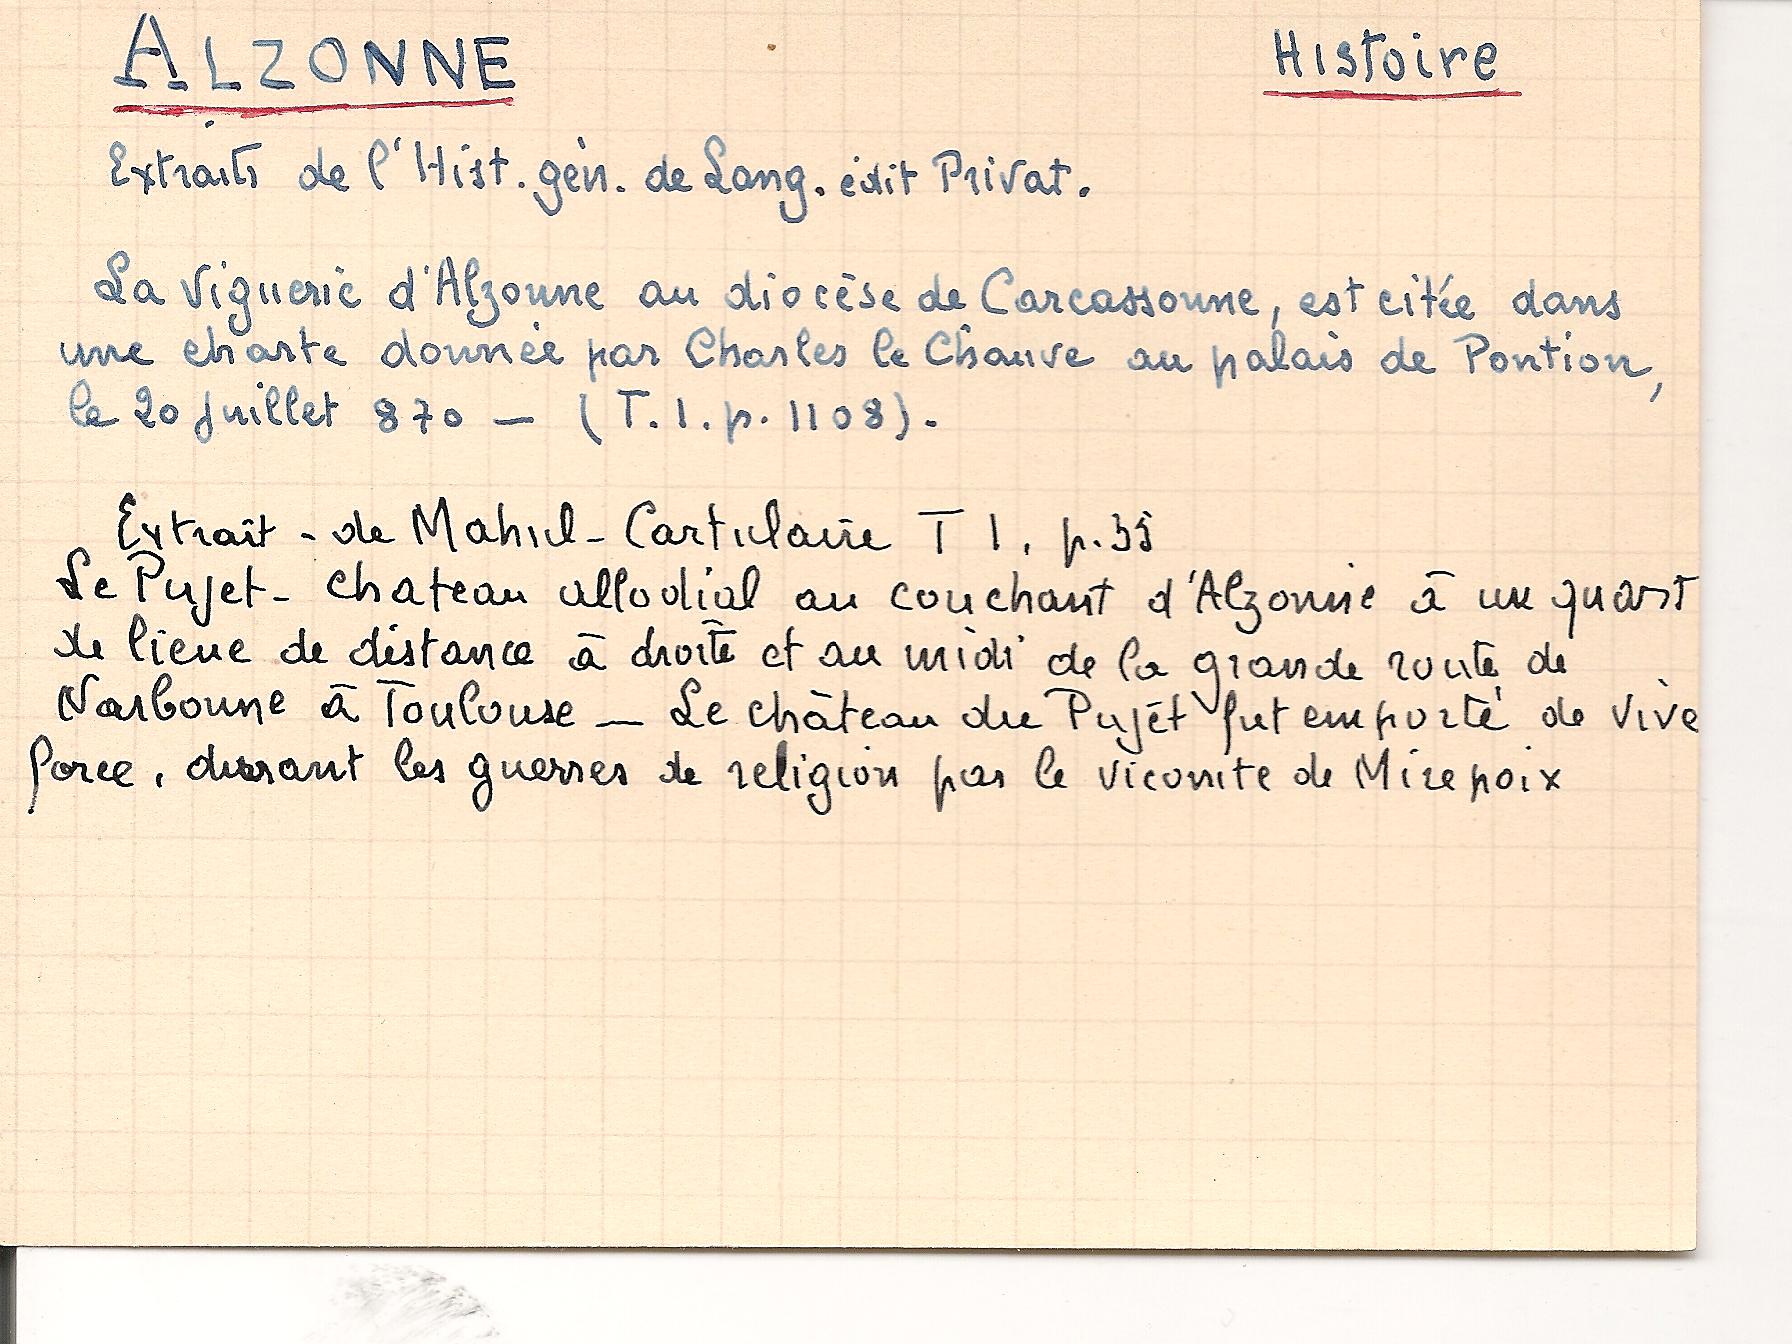 ALZONNE
Histoire
Extraits de l'Hist. gén. de Lang. édit Privat.
La Viguerie d'Alzonne au diocèse de Carcassonne, est citée dans
une charte donnée par Charles le Chauve au palais de Pontion,
le 20 juillet 870 — (T. 1. p. 1108).
Extrait - de Mahul - Cartulaire T 1. p. 35
Le Pujet - chateau allodial au couchant d'Alzonne à un quart
de lieue de distance à droite et au midi de la grande route de
Narbonne à Toulouse — Le château du Pujet fut emporté de vive
force, durant les guerres de religion par le vicomte de Mirepoix